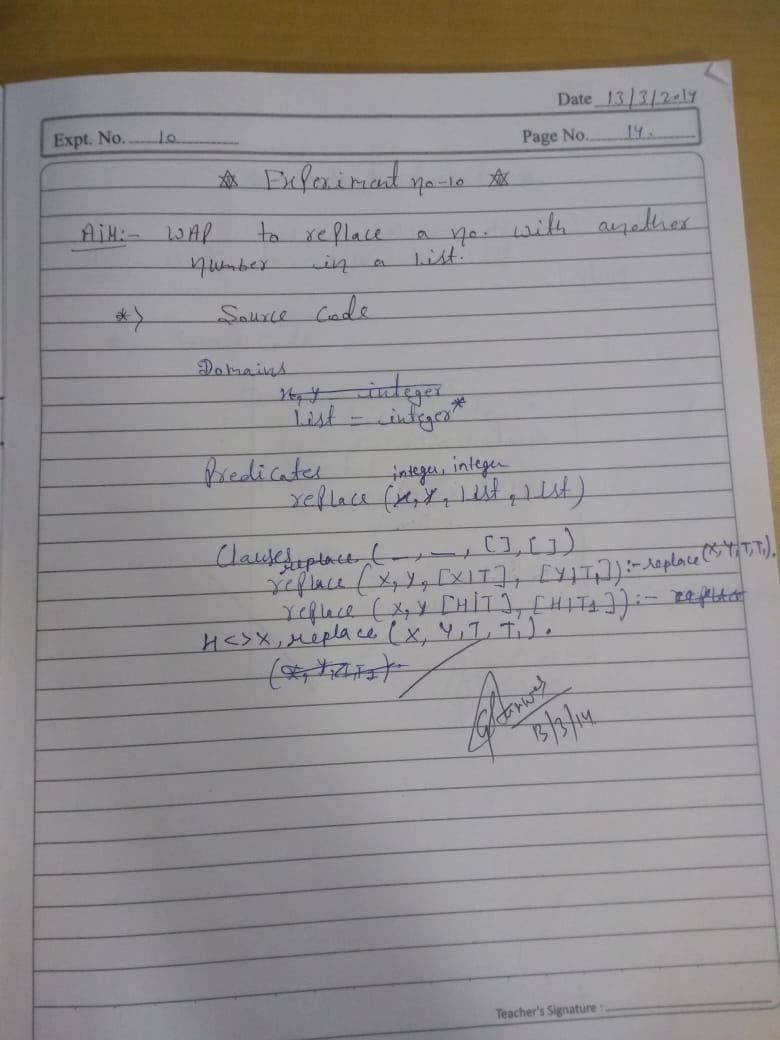 Date 13/3/2014
Expt. No. 10
Page No. 14.
☆ Experiment no-10 ☆
AiM:- WAP to replace a no. with another
number in a list.
*) Source Code
Domains
x, y integer
list = integer*
Predicates integer, integer
replace (x, y, list, list)
Clauses replace (_, _, [], [])
replace (X, Y, [X|T], [Y|T1]):- replace (X, Y, T, T1).
replace (X, Y [H|T], [H|T1]):- replace
H<>X, replace (X, Y, T, T1).
(X, Y, T, T1).
13/3/14
Teacher's Signature :